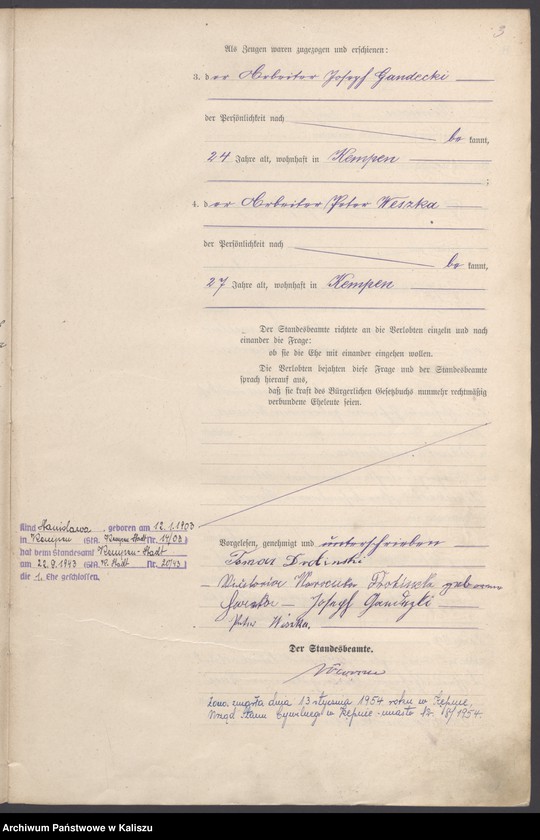 3
Als Zeugen waren zugezogen und erschienen:
3. der Arbeiter Joseph Gandecki
der Persönlichkeit nach
be kannt,
24 Jahre alt, wohnhaft in Kempen
;
4. der Arbeiter Peter Weszka
der Persönlichkeit nach
be kannt,
27 Jahre alt, wohnhaft in Kempen
Der Standesbeamte richtete an die Verlobten einzeln und nach
einander die Frage:
ob sie die Ehe mit einander eingehen wollen.
Die Verlobten bejahten diese Frage und der Standesbeamte
sprach hierauf aus,
daß sie kraft des Bürgerlichen Gesetzbuchs nunmehr rechtmäßig
verbundene Eheleute seien.
Kind Stanislawa, geboren am 12.1.1903
in Kempen (StA. Kempen-Stadt Nr. 14/03)
hat beim Standesamt Kempen-Stadt
am 22.9.1943 (StA. K. Stadt Nr. 20/43)
die 1. Ehe geschlossen.
Vorgelesen, genehmigt und unterschrieben
Tomas
Victoria geborene
Joseph
Peter Weszka.
Der Standesbeamte.
żona zmarła dnia 13 stycznia 1954 roku w Kępnie,
Urząd Stanu Cywilnego w Kępnie-miasto Nr. 18/1954.
Archiwum Państwowe w Kaliszu